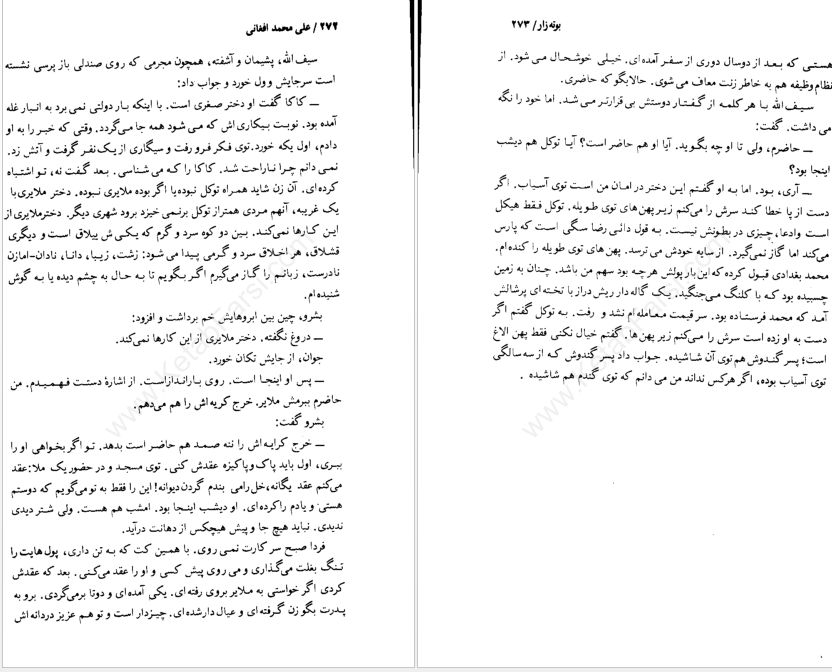 ۲۷۲ / علی محمد افغانی
سیف الله، پشیمان و آشفته، همچون مجرمی که روی صندلی باز پرسی نشسته
است سرجایش وول خورد و جواب داد:
ــ کاکا گفت او دختر صغری است. با اینکه بار دولتی نمی برد به انبار غله
آمده بود. نوبت بیکاری اش که می شود همه جا می‌گردد. وقتی که خبر را به او
دادم، اول یکه خورد. توی فکر فرو رفت و سیگاری از یک نفر گرفت و آتش زد.
نمی دانم چرا ناراحت شد. کاکا را که می شناسی. بعد گفت نه، تو اشتباه
کرده ای. آن زن شاید همراه توکل نبوده یا اگر بوده ملایری نبوده. دختر ملایری با
یک غریبه، آنهم مردی همتراز توکل برنمی خیزد برود شهری دیگر. دختر ملایری از
این کارها نمی‌کند. بین دو کوه سرد و گرم که یکی ش ییلاق است و دیگری
قشلاق، هر اخلاق سرد و گرمی پیدا می شود: زشت، زیبا، دانا، نادان-امازن
نادرست، زبانم را گاز می‌گیرم اگر بگویم تا به حال به چشم دیده یا به گوش
شنیده ام.
بشرو، چین بین ابروهایش خم برداشت و افزود:
ــ دروغ نگفته. دختر ملایری از این کارها نمی‌کند.
جوان، از جایش تکان خورد.
ــ پس او اینجا است. روی باراندازاست. از اشارهٔ دستت فهمیدم. من
حاضرم ببرمش ملایر. خرج کریه اش را هم می‌دهم.
بشرو گفت:
ــ خرج کرایه اش را ننه صمد هم حاضر است بدهد. تو اگر بخواهی او را
ببری، اول باید پاک و پاکیزه عقدش کنی. توی مسجد و در حضور یک ملا: عقد
می‌کنم عقد یگانه، خل رامی بندم گردن دیوانه! این را فقط به تو می‌گویم که دوستم
هستی و یادم را کرده ای. او دیشب اینجا بود. امشب هم هست. ولی شتر دیدی
ندیدی. نباید هیچ جا و پیش هیچکس از دهانت درآید.
فردا صبح سر کارت نمی روی. با همین کت که به تن داری، پول هایت را
تنگ بغلت می‌گذاری و می روی پیش کسی و او را عقد می‌کنی. بعد که عقدش
کردی اگر خواستی به ملایر بروی رفته ای. یکی آمده ای و دوتا برمی‌گردی. برو به
پدرت بگو زن گرفته ای و عیال دار شده ای. چیزدار است و تو هم عزیز دردانه اش
بوته زار/ ۲۷۳
هستی که بعد از دوسال دوری از سفر آمده ای. خیلی خوشحال می شود. از
نظام وظیفه هم به خاطر زنت معاف می شوی. حالا بگو که حاضری.
سیف الله با هر کلمه از گفتار دوستش بی قرارتر می شد. اما خود را نگه
می داشت. گفت:
ــ حاضرم، ولی تا او چه بگوید. آیا او هم حاضر است؟ آیا توکل هم دیشب
اینجا بود؟
ــ آری، بود. اما به او گفتم این دختر در امان من است توی آسیاب. اگر
دست از پا خطا کند سرش را می‌کنم زیر پهن های توی طویله. توکل فقط هیکل
است وادعا، چیزی در بطونش نیست. به قول دائی رضا سگی است که پارس
می‌کند اما گاز نمی‌گیرد. از سایه خودش می ترسد. پهن های توی طویله را کنده ام.
محمد بغدادی قبول کرده که این بار پولش هر چه بود سهم من باشد. چنان به زمین
چسبیده بود که با کلنگ می‌جنگید. یک گاله دار ریش دراز با تخته ای پرشالش
آمد که محمد فرستاده بود. سر قیمت معامله ام نشد و رفت. به توکل گفتم اگر
دست به او زده است سرش را می‌کنم زیر پهن ها. گفتم خیال نکنی فقط پهن الاغ
است؛ پسر گندوش هم توی آن شاشیده. جواب داد پسر گندوش که از سه سالگی
توی آسیاب بوده، اگر هرکس نداند من می دانم که توی گندم هم شاشیده.
www.KetabFarsi.com
www.KetabFarsi.com